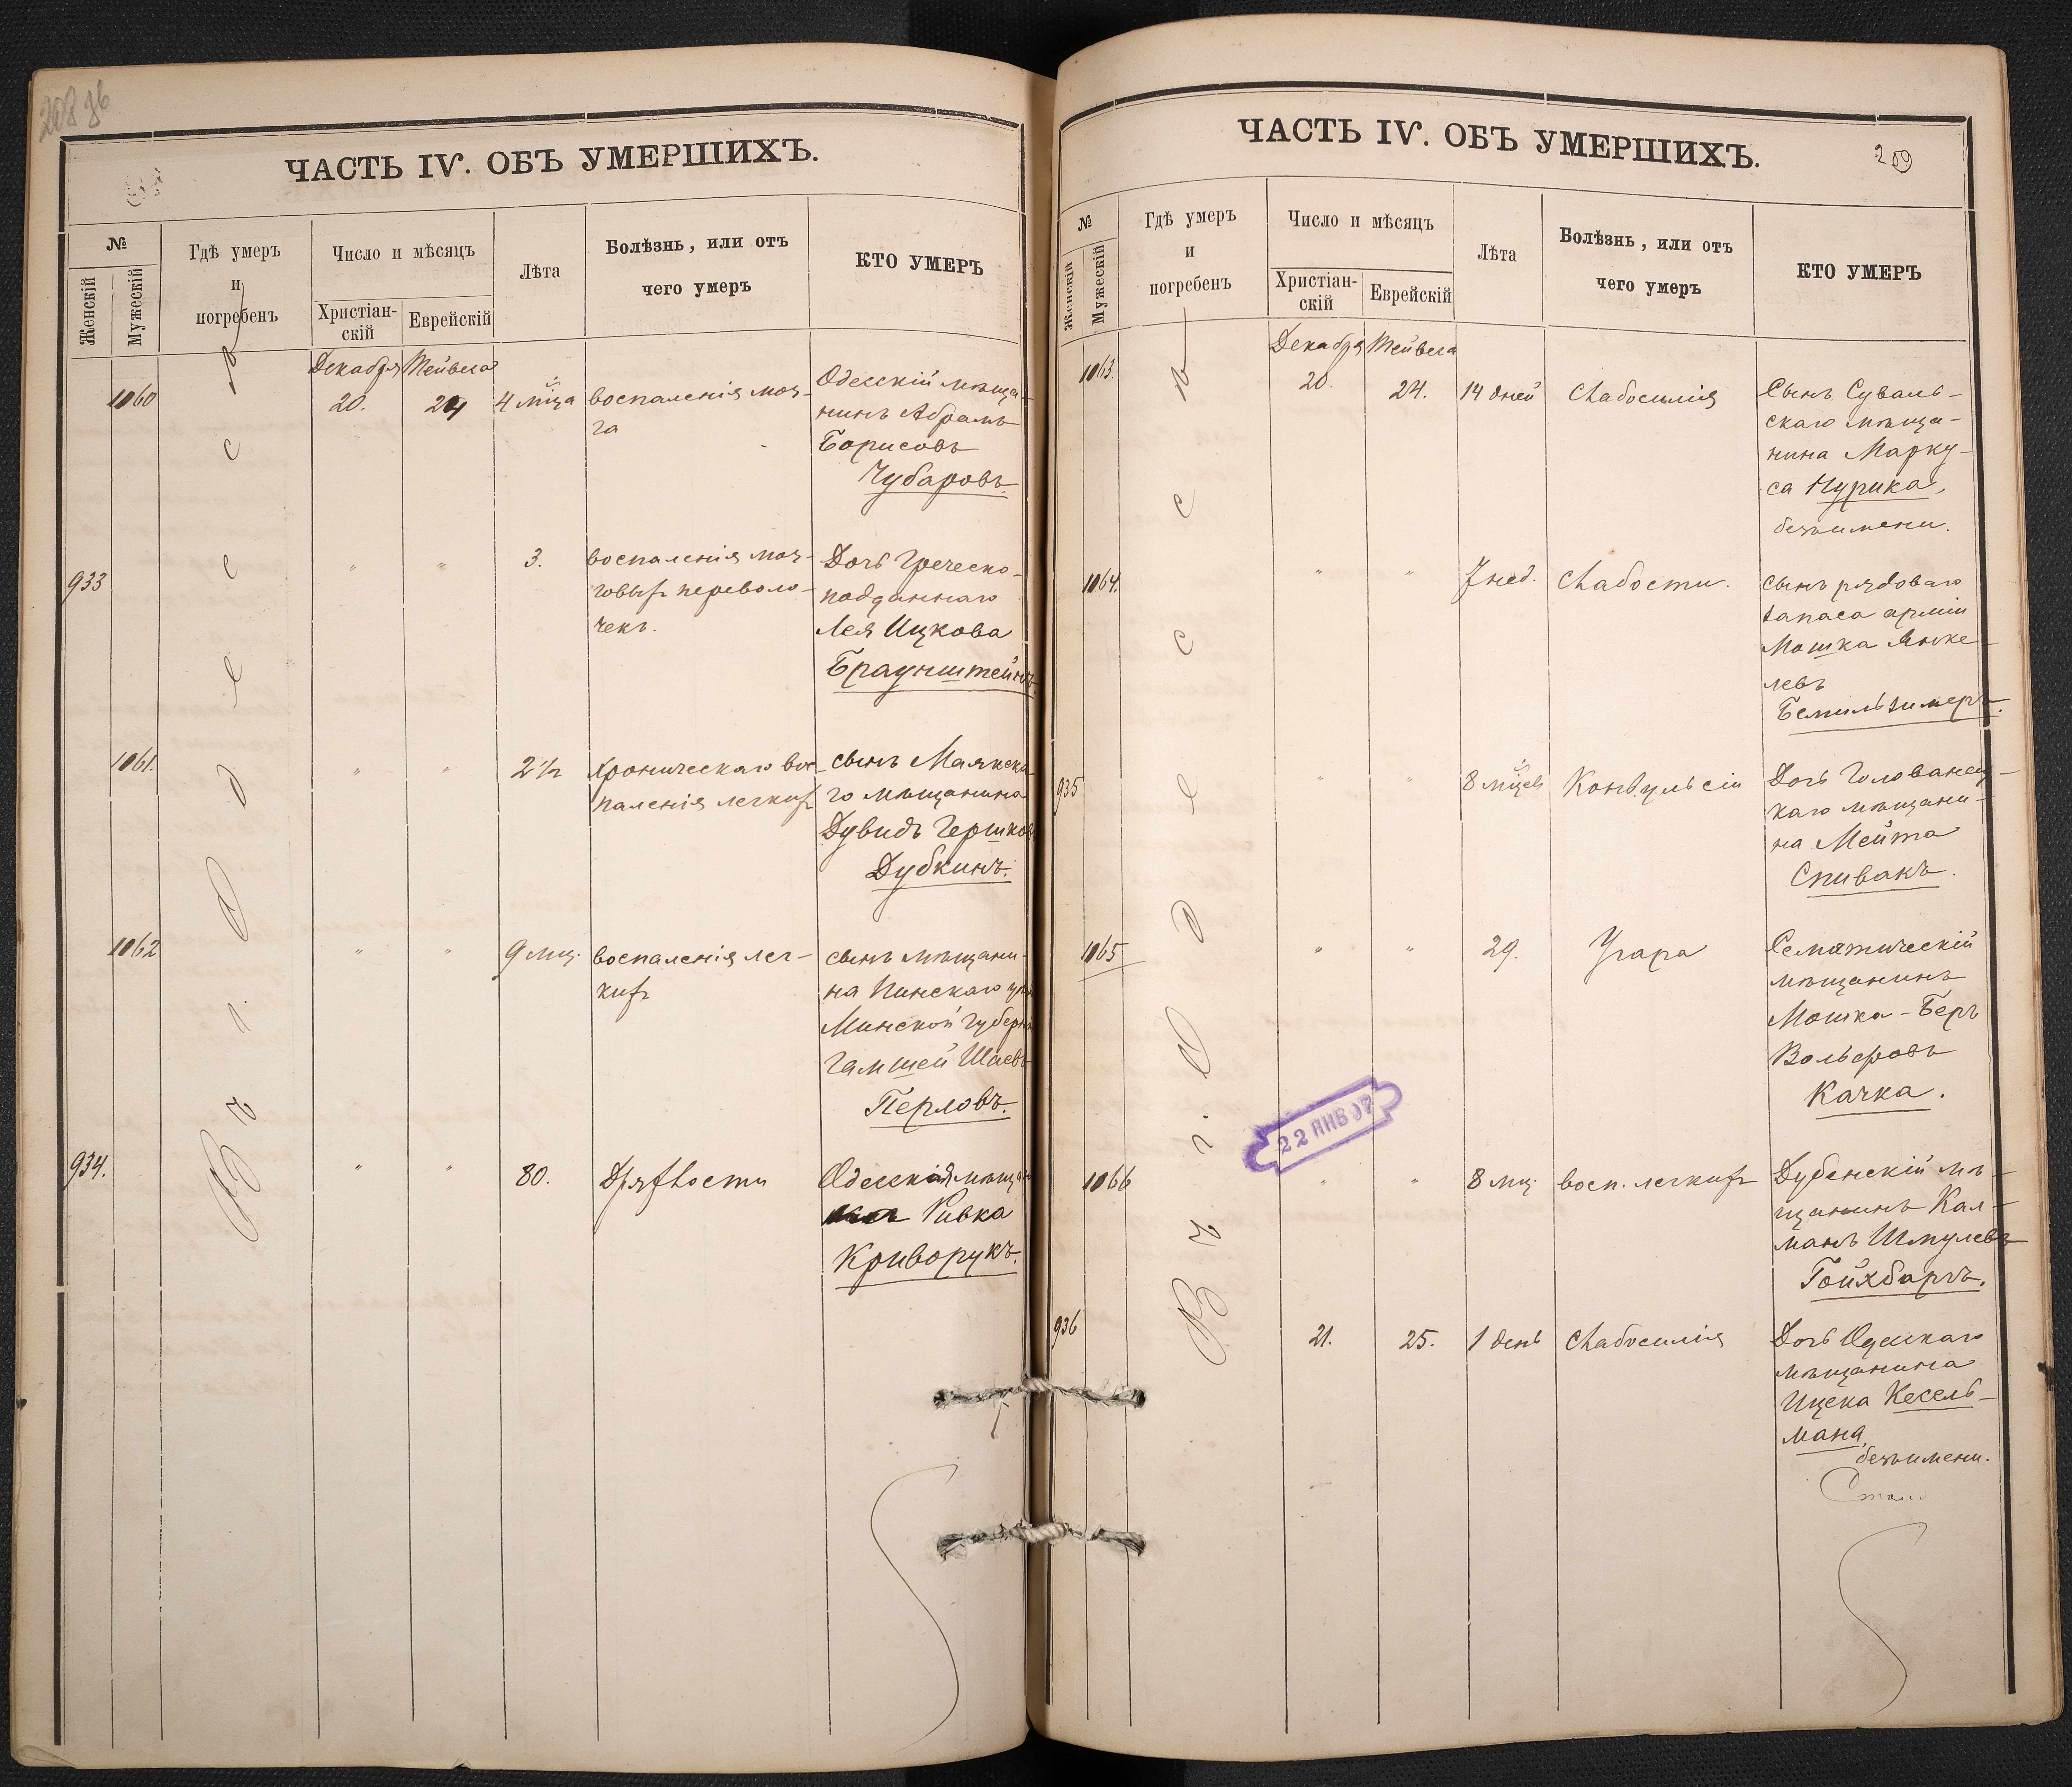 208 об
ЧАСТЬ IV. ОБЪ УМЕРШИХЪ.
№
Женскій
Мужескій
Гдѣ умеръ
и
погребенъ
Число и мѣсяцъ
Христіан-
скій
Еврейскій
Лѣта
Болѣзнь, или отъ
чего умеръ
КТО УМЕРЪ
Въ г. Одессѣ
Декабря Тейвеса
1060
20.
24
4 мѣца
воспаленія моз-
га
Одесскій мѣща-
нинъ Абрамъ
Борисовъ
Чубаровъ.
933
"
"
3.
воспаленія моз-
говыхъ переволо-
чекъ.
Дочь Греческо-
подданнаго
Лея Ицкова
Браунштейнъ.
1061.
"
"
2 ½
хроническаго вос-
паленія легкихъ
сынъ Маякска-
го мѣщанина
Дувидъ Гершковъ
Дубкинъ.
1062
"
"
9 мц.
воспаленія лег-
кихъ
сынъ мѣщани-
на Пинскаго
Минской губерніи
Гамшей Шаевъ
Перловъ.
934.
"
"
80.
Дряхлости
Одесская
Ривка
Криворукъ.
ЧАСТЬ IV. ОБЪ УМЕРШИХЪ.
209
№
Женскій
Мужескій
Гдѣ умеръ
и
погребенъ
Число и мѣсяцъ
Христіан-
скій
Еврейскій
Лѣта
Болѣзнь, или отъ
чего умеръ
КТО УМЕРЪ
Въ г. Одессѣ
Декабря Тейвеса
1063.
20.
24.
14 дней
слабосилія
Сынъ Суваль-
скаго мѣща-
нина Марку-
са Пурика,
безъимени.
1064.
"
"
7 нед.
слабости.
сынъ рядоваго
запаса арміи
Мошка Янке-
левъ
935
"
"
8 мѣцев
Конвульсіи
Дочь Голованев-
каго мѣщани-
на Мейта
Спивакъ.
1065
"
"
29.
Угара
Семятическій
мѣщанинъ
Мошка-Беръ
Вольфовъ
Качка.
22 ЯНВ 07
1066
"
"
8 мц.
восп. легкихъ
Дубенскій мѣ-
щанинъ Кал-
манъ Шмулевъ
Гойхбаргъ.
936
21.
25.
1 день
слабосилія
Дочь Одесскаго
мѣщанина
Ицека Кесель-
мана,
безъимени.